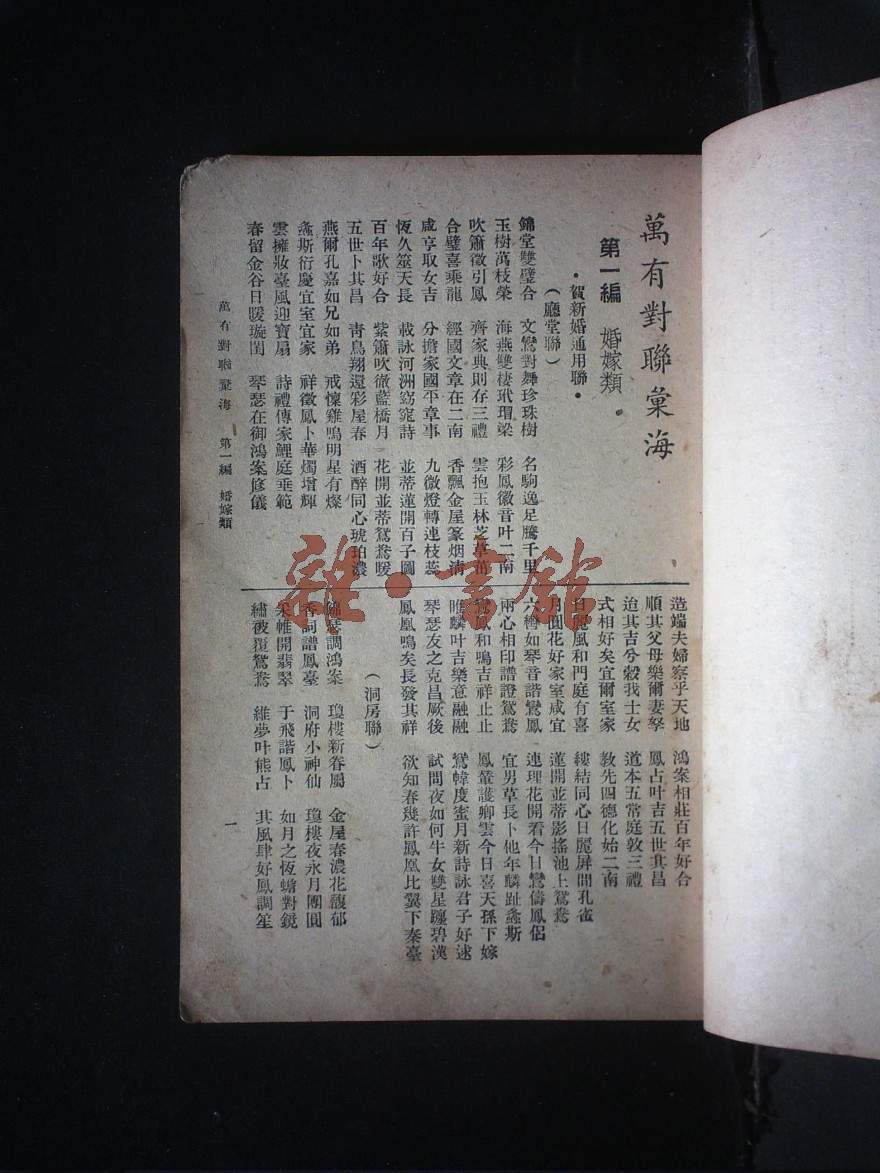 萬有對聯彙海
第一編 婚嫁類
•賀新婚通用聯•
(廳堂聯)
錦堂雙璧合 文鸞對舞珍珠樹 名駒逸足騰千里
玉樹萬枝榮 海燕雙棲玳瑁梁 彩鳳徽音叶二南
吹簫徵引鳳 齊家典則存三禮 雲抱玉林芝草茁
合璧喜乘龍 經國文章在二南 香飄金屋篆烟清
咸亨取女吉 分擔家國平章事 九微燈轉連枝蕊
恆久筮天長 載詠河洲窈窕詩 並蒂蓮開百子圖
百年歌好合 紫簫吹徹藍橋月 花開並蒂鴛鴦暖
五世卜其昌 青鳥翔還彩屋春 酒醉同心琥珀濃
燕爾孔嘉如兄如弟 戒懍雞鳴明星有燦
螽斯衍慶宜室宜家 祥徵鳳卜華燭增輝
雲擁妝臺風迎寶扇 詩禮傳家鯉庭垂範
春留金谷日暖璇閨 琴瑟在御鴻案修儀
造端夫婦察乎天地 鴻案相莊百年好合
順其父母樂爾妻孥 鳳占叶吉五世其昌
迨其吉兮穀我士女 道本五常庭敦三禮
式相好矣宜爾室家 教先四德化始二南
日麗風和門庭有喜 縷結同心日麗屏間孔雀
月圓花好家室咸宜 蓮開並蒂影搖池上鴛鴦
六轡如琴音諧鸞鳳 連理花開看今日鸞儔鳳侶
兩心相印譜證鴛鴦 宜男草長卜他年麟趾螽斯
鸞鳳和鳴吉祥止止 鳳輦護卿雲今日喜天孫下嫁
睢麟叶吉樂意融融 鴛幃度蜜月新詩詠君子好逑
琴瑟友之克昌厥後 試問夜如何牛女雙星躔碧漢
鳳凰鳴矣長發其祥 欲知春幾許鳳凰比翼下秦臺
(洞房聯)
錦瑟調鴻案 瓊樓新眷屬 金屋春濃花馥郁
香詞譜鳳臺 洞府小神仙 瓊樓夜永月團圓
采帷開翡翠 于飛諧鳳卜 如月之恆蟾對鏡
繡被覆鴛鴦 維夢叶熊占 其風肆好鳳調笙
萬有對聯彙海 第一編 婚嫁類
一
雜·書館